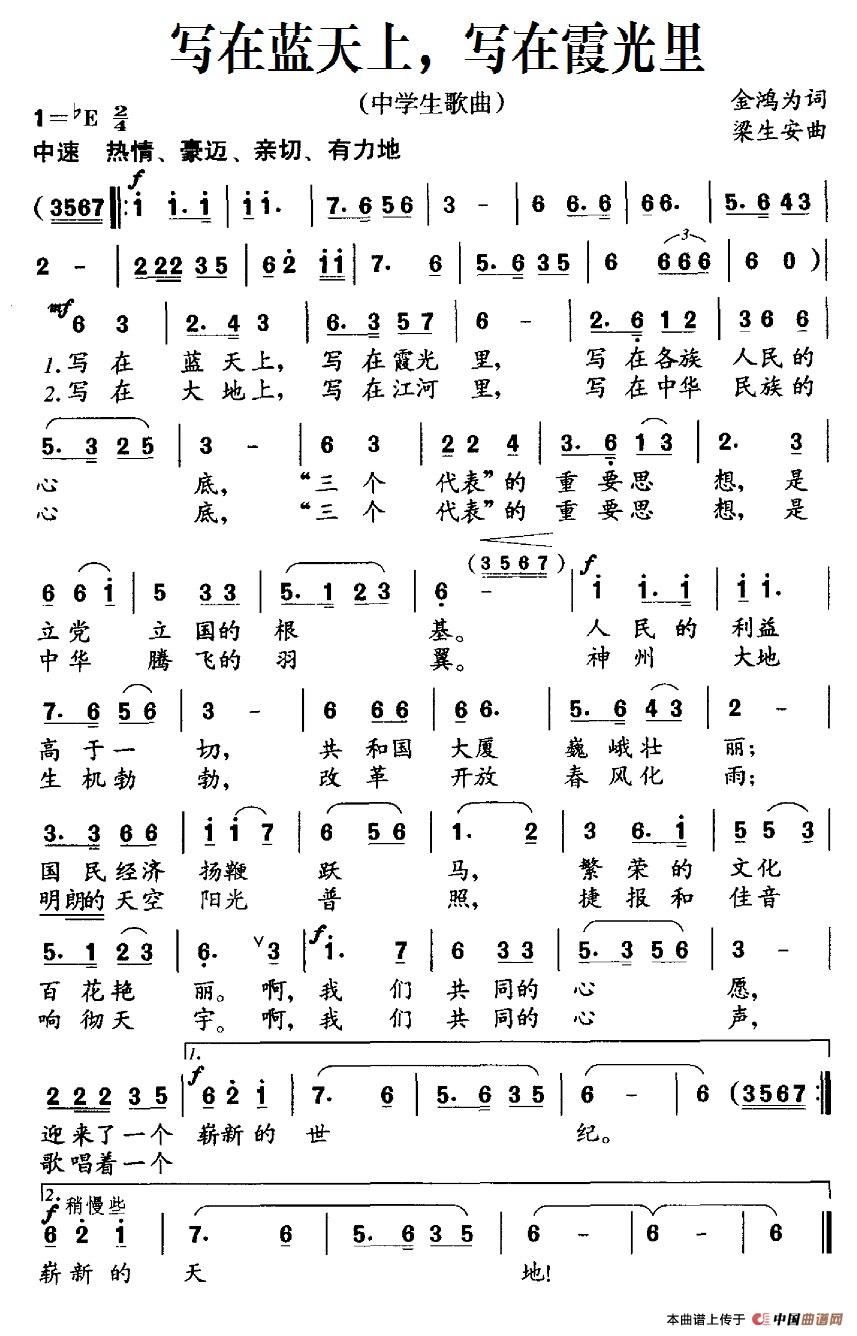 写在蓝天上，写在霞光里
（中学生歌曲）
金鸿为词
梁生安曲
1=♭E 2/4
中速 热情、豪迈、亲切、有力地
f
(3567 ‖: i i. i | i i. | 7. 6 5 6 | 3 - | 6 6. 6 | 6 6. | 5. 6 4 3 |
2 - | 2 2 2 3 5 | 6 2 i i | 7. 6 | 5. 6 3 5 | 6 6 6 6 | 6 0 )
3
mf
6 3 | 2. 4 3 | 6. 3 5 7 | 6 - | 2. 6 1 2 | 3 6 6
1.写 在 蓝 天上， 写 在霞光 里， 写 在各族 人民的
2.写 在 大 地上， 写 在江河 里， 写 在中华 民族的
5. 3 2 5 | 3 - | 6 3 | 2 2 4 | 3. 6 1 3 | 2. 3
心 底， “三 个 代表”的 重 要思 想， 是
心 底， “三 个 代表”的 重 要思 想， 是
(3 5 6 7) f
6 6 i | 5 3 3 | 5. 1 2 3 | 6 - | i i. i | i i. |
立党 立国的 根 基。 人 民 的 利益
中华 腾飞的 羽 翼。 神 州 大地
7. 6 5 6 | 3 - | 6 6 6 | 6 6. | 5. 6 4 3 | 2 - |
高 于一 切， 共 和国 大厦 巍 峨壮 丽；
生 机勃 勃， 改 革 开放 春 风化 雨；
3. 3 6 6 | i i 7 | 6 5 6 | 1. 2 | 3 6. i | 5 5 3 |
国 民经济 扬鞭 跃 马， 繁 荣 的 文化
明朗的天空 阳光 普 照， 捷 报 和 佳音
f
5. 1 2 3 | 6. ∨ 3 | i. 7 | 6 3 3 | 5. 3 5 6 | 3 - |
百 花艳 丽。 啊， 我 们 共 同的 心 愿，
响 彻天 宇。 啊， 我 们 共 同的 心 声，
1.
f
2 2 2 3 5 | 6 2 i | 7. 6 | 5. 6 3 5 | 6 - | 6 (3567 :‖
迎来了一个 崭新的 世 纪。
歌唱着一个
2.
f 稍慢些
6 2 i | 7. 6 | 5. 6 3 5 | 6 - | 6 - | 6 - ‖
崭新的 天 地!
本曲谱上传于 中国曲谱网